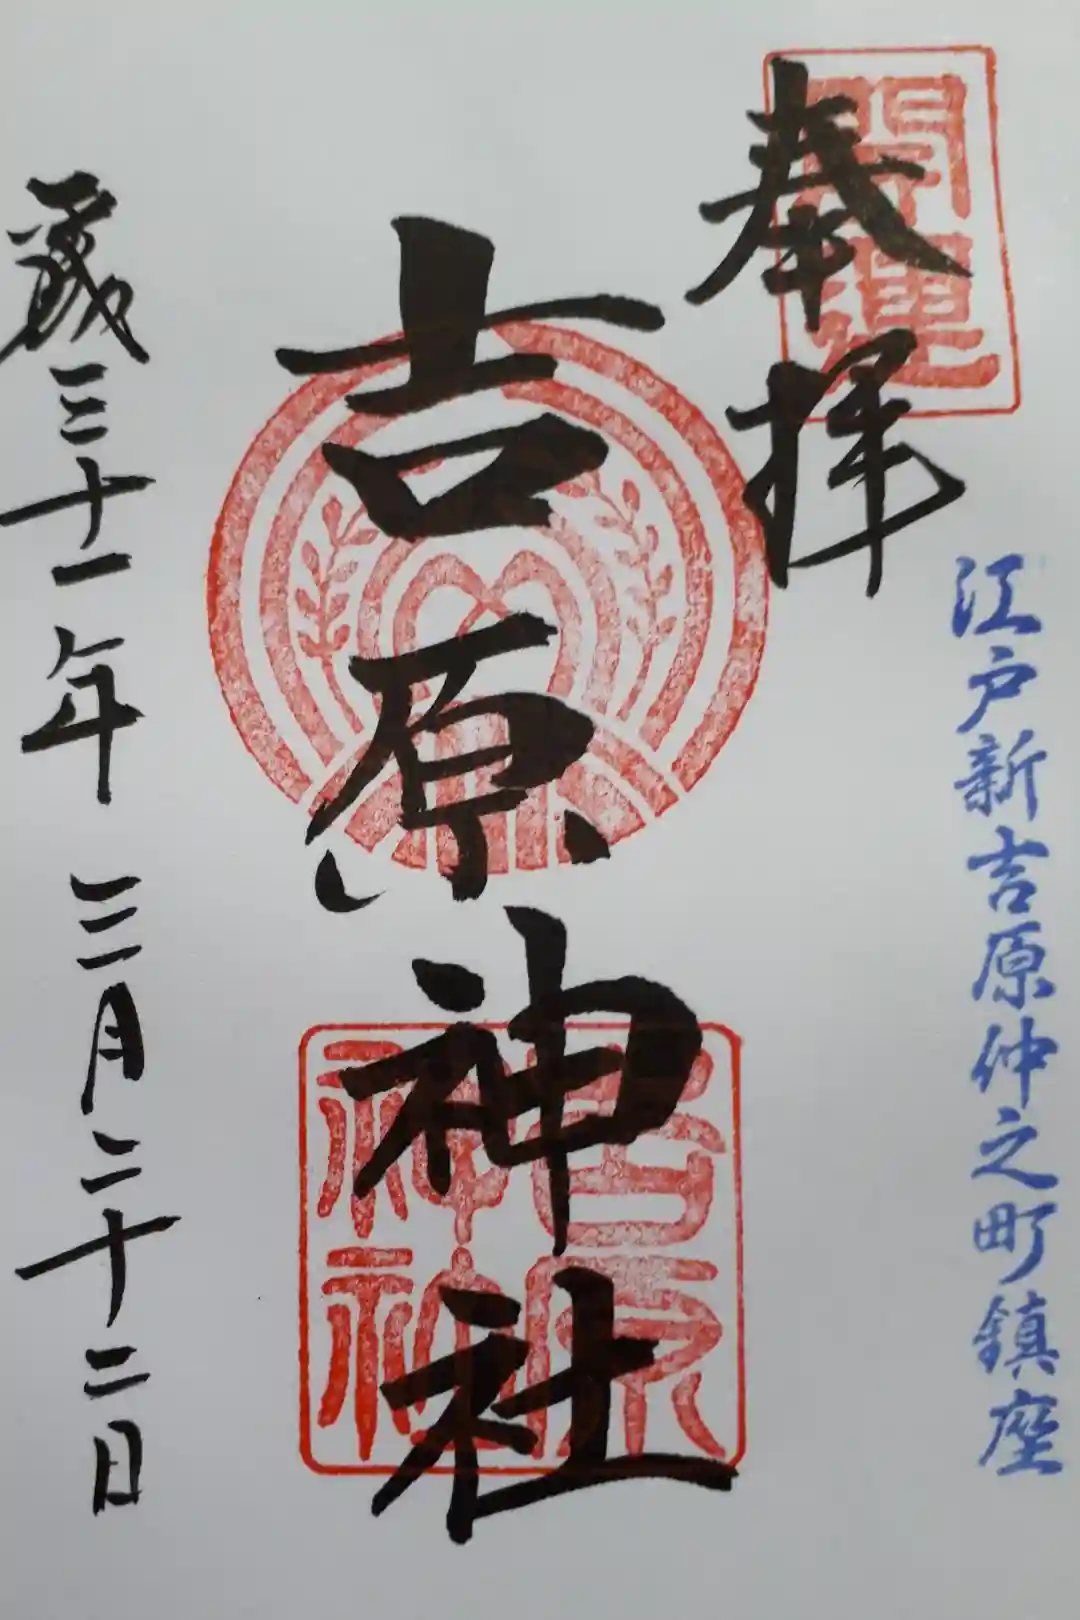 開運
奉拝
江戸新吉原仲之町鎮座
吉原神社
吉原神社
平成三十一年三月二十二日